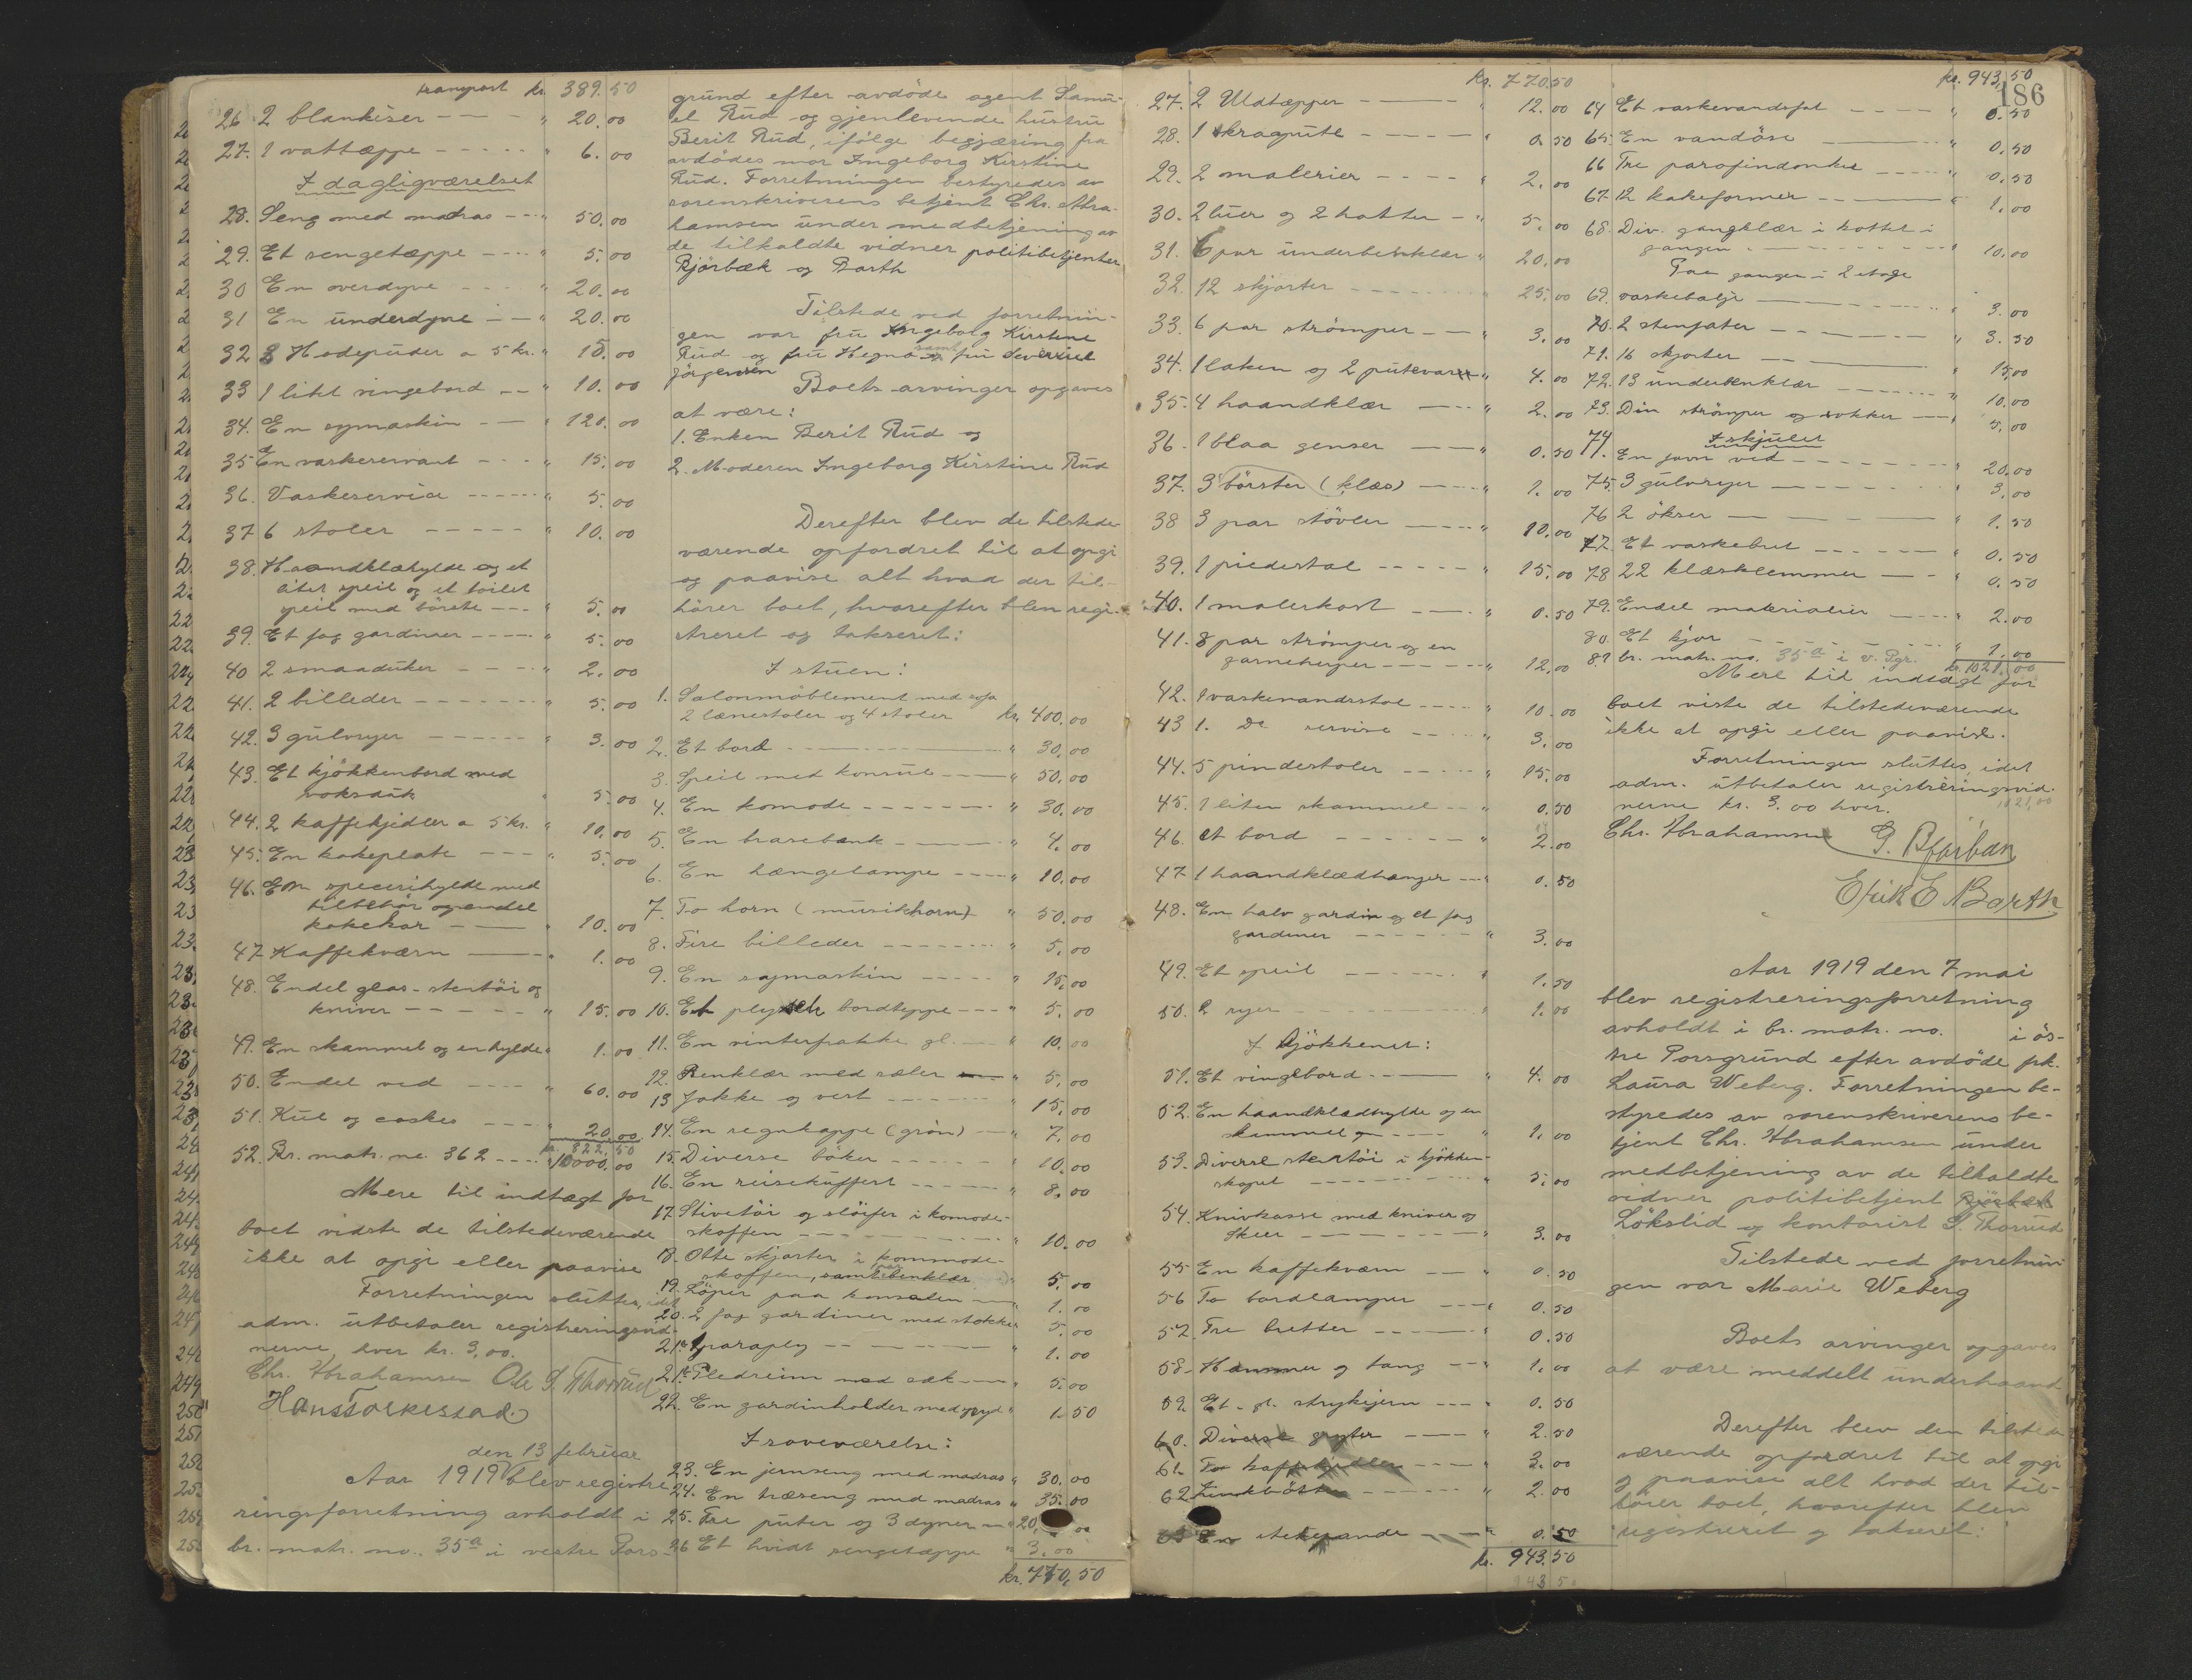 transport kr. 389.50
26. 2 blankiser - - - " 20.00
27. 1 vattæppe - - - - " 6.00
I dagligværelset
28. Seng med madras - - " 50.00
29. Et sengetæppe - - - - " 5.00
30 En overdyne - - - " 20.00
31 En underdyne - - " 20.00
32 3 Hodepuder a 5 kr. " 15.00
33 1 litet vingebord - - " 10.00
34. En symaskin - - " 120.00
35 En vaskeservant - - - " 15.00
36. Vaskeservice - - - - " 5.00
37 6 stoler - - - - - " 10.00
38. Haandklæhylde og et
litet speil og et toilet
speil med börste - - - " 5.00
39. Et fag gardiner - - - - " 5.00
40 2 smaaduker - - - " 2.00
41. 2 billeder - - - - - " 5.00
42. 3 gulvryer - - - - - " 3.00
43. Et kjökkenbord med
voksduk " 5.00
44. 2 kaffekjedler a 5 kr. " 10.00
45. En kokeplate - - - " 5.00
46. En specerihylde med
tilbehör og endel
kokekar - - " 10.00
47 Kaffekværn - - - " 1.00
48. Endel glas - stentöi og
kniver - - - - - " 15.00
49. En skammel og en hylde " 1.00
50. Endel ved - - - - " 60.00
51. Kul og coskes - - - - " 20.00
kr. 822.50
52. Br. matr. no. 362 - - - - " 10000.00
Mere til indtægt for
boet vidste de tilstedeværende
ikke at opgi eller paavise
Forretningen sluttes, idet
adm. utbetaler registreringsvid-
nerne, hver kr. 3,00.
Chr. Abrahamsen Ole S. Thorrud
Hans Folkestad
den 13 februar
Aar 1919 blev registre-
ringsforretning avholdt i
br. matr. no. 35a i vestre Pors-
grund efter avdöde agent Samu-
el Rud og gjenlevende hustru
Berit Rud, ifölge begjæring fra
avdödes mor Ingeborg Kirstine
Rud. Forretningen bestyredes av
sorenskriverens betjent Chr. Abra-
hamsen under medbetjening av
de tilkaldte vidner politibetjenter
Bjørbæk og Barth
Tilstede ved forretnin-
gen var fru Ingeborg Kirstine
Rud og fru Hegna samt fru Severine
Jörgensen
Boets arvinger opgaves
at være:
1. Enken Berit Rud og
2. Moderen Ingeborg Kirstine Rud
Derefter blev de tilstede-
værende opfordret til at opgi
og paavise alt hvad der til-
hörer boet, hvorefter blev regi-
streret og takseret:
I stuen:
1. Salonmöblement med sofa
2 lænestoler og 4 stoler kr. 400.00
2. Et bord - - - " 30.00
3. Speil med konsul - - - " 50.00
4. En komode - - - - - - " 30.00
5. En brasebænk - - - " 4.00
6. En hængelampe - - - " 10.00
7. To horn (musikhorn) " 50.00
8. Fire billeder - - - - - " 5.00
9. En symaskin - - - - " 15.00
10. Et plysch bordteppe - - - " 5.00
11. En vinterfrakke gl. - - " 10.00
12. Benklær med sæler - - " 5.00
13 Jakke og vest - - - - " 15.00
14. En regnkappe (grön) - - " 7.00
15. Diverse böker - - - - - " 10.00
16. En reisekuffert - - - - " 8.00
17. Stivetöi og slöifer i komode-
skoffen - - - - - " 10.00
18. Otte skjorter i kommode-
skoffen, samt benklær " 5.00
19. Löper paa konsolen - - " 1.00
20. 2 fag gardiner med stokker " 5.00
21. 1 paraply - - - - " 1.00
21. Pledreim med sæk - - " 5.00
22. En gardinholder med gryd " 1.50
I soveværelse:
23. En jernseng med madras " 30.00
24. En træseng med madras " 35.00
25. Tre puter og 3 dyner - - " 20.00
26 Et hvidt sengetæppe " 3.00
kr. 770,50
kr. 770.50
27. 2 Uldtæpper - - - " 12.00
28. 1 skragpute - - - - - " 0.50
29. 2 malerier - - - - " 2.00
30. 2 luer og 2 hatter - " 5.00
31. 6 par underbenklær " 20.00
32. 12 skjorter - - - - - - " 25.00
33. 6 par strömper - - - " 3.00
34. 1 laken og 2 putevarer " 4.00
35. 4 haandklær - - - " 2.00
36. 1 blaa genser - - - " 0.50
37. 3 börster (klæs) - - - " 1.00
38 3 par stövler - - - - " 10.00
39. 1 piedestal - - - - - " 15.00
40. 1 malerkost - - - " 0.50
41. 8 par strömper og en
garneherper - - - - " 12.00
42. 1 vaskevandsstol - - - - " 10.00
43 1. Do servise - - - " 3.00
44. 5 pindestoler - - - - - " 15.00
45. 1 liten skammel - - " 0.50
46. et bord - - - - - - " 2.00
47 1 haandklædhænger - - " 0.50
48. En halv gardin og et fag
gardiner - - - - - - " 3.00
49. Et speil - - - - - - " 1.50
50. 2 ryer - - - - - - - " 1.00
I Kjökkenet:
51. Et vingebord - - - " 4.00
52. En haandklædhylde og en
skammel - - - - " 1.00
53. Diverse stentöi i kjökken-
skapet - - - - - - - " 5.00
54. Knivkasse med kniver og
skeer - - - - - - - " 3.00
55 En kaffekværn - - " 0.50
56 To bordlamper - - - " 0.50
57. Tre bretter - - - - - " 0.50
58. Hammer og tang - - " 1.00
59. Et gl. strykejern - - - " 0.50
60. Diverse gryter - - - " 2.50
61. To kaffekjedler - - - " 3.00
62. Zinkbötte - - - - - - " 2.00
63 En stekepande - - - " 0.50
kr. 943.50
943.50
kr. 943,50
186
64 Et vaskevandsfat - - - - " 0.50
65. En vandöse - - - - " 0.50
66 Tre parafindonke - - - - " 0.50
67. 12 kakeformer - - - - " 1.00
68. Div. gangklær i kottet i
gangen - - - - - " 10.00
Paa gangen i 2 etage
69. vaskebalje - - - - - " 3.00
70. 2 stenfater - - - - - " 3.50
71. 16 skjorter - - - " 15.00
72. 13 underbenklær - - - - " 10.00
73. Div strömper og sokker - - " 5.00
I skjulet
74. En favn ved - - - - - - " 20.00
75. 3 gulvryer - - - - - - " 3.00
76 2 ökser - - - - - " 1.50
77. Et vaskebret - - - - - " 0.50
78 22 klæsklemmer - - - " 0.50
79. Endel materialier - - - - " 2.00
80. Et kjor - - - - - - " 1.00
81 br. matr. no. 35a i v. Pgr. kr. 1021.00
Mere til indtægt for
boet viste de tilstedeværende
ikke at opgi eller paavise.
Forretningen sluttes, idet
adm. utbetaler registreringsvid-
nerne kr. 3.00 hver. 1021,00
Chr. Abrahamsen G. Bjørbæk
Erik E. Barth
Aar 1919 den 7 mai
blev registreringsforretning
avholdt i br. matr. no. i ös-
tre Porsgrund efter avdöde frk.
Laura Weberg. Forretningen be-
styredes av sorenskriverens be-
tjent Chr. Abrahamsen under
medbetjening av de tilkaldte
vidner politibetjent Bjørbæk
Lökslid og kontorist S. Thorrud
Tilstede ved forretnin-
gen var Marie Weberg
Boets arvinger opgaves
at være meddelt underhaand
Derefter blev den tilstede-
værende opfordret til at opgi
og paavise alt hvad der til-
hörer boet, hvorefter blev
registreret og takseret: